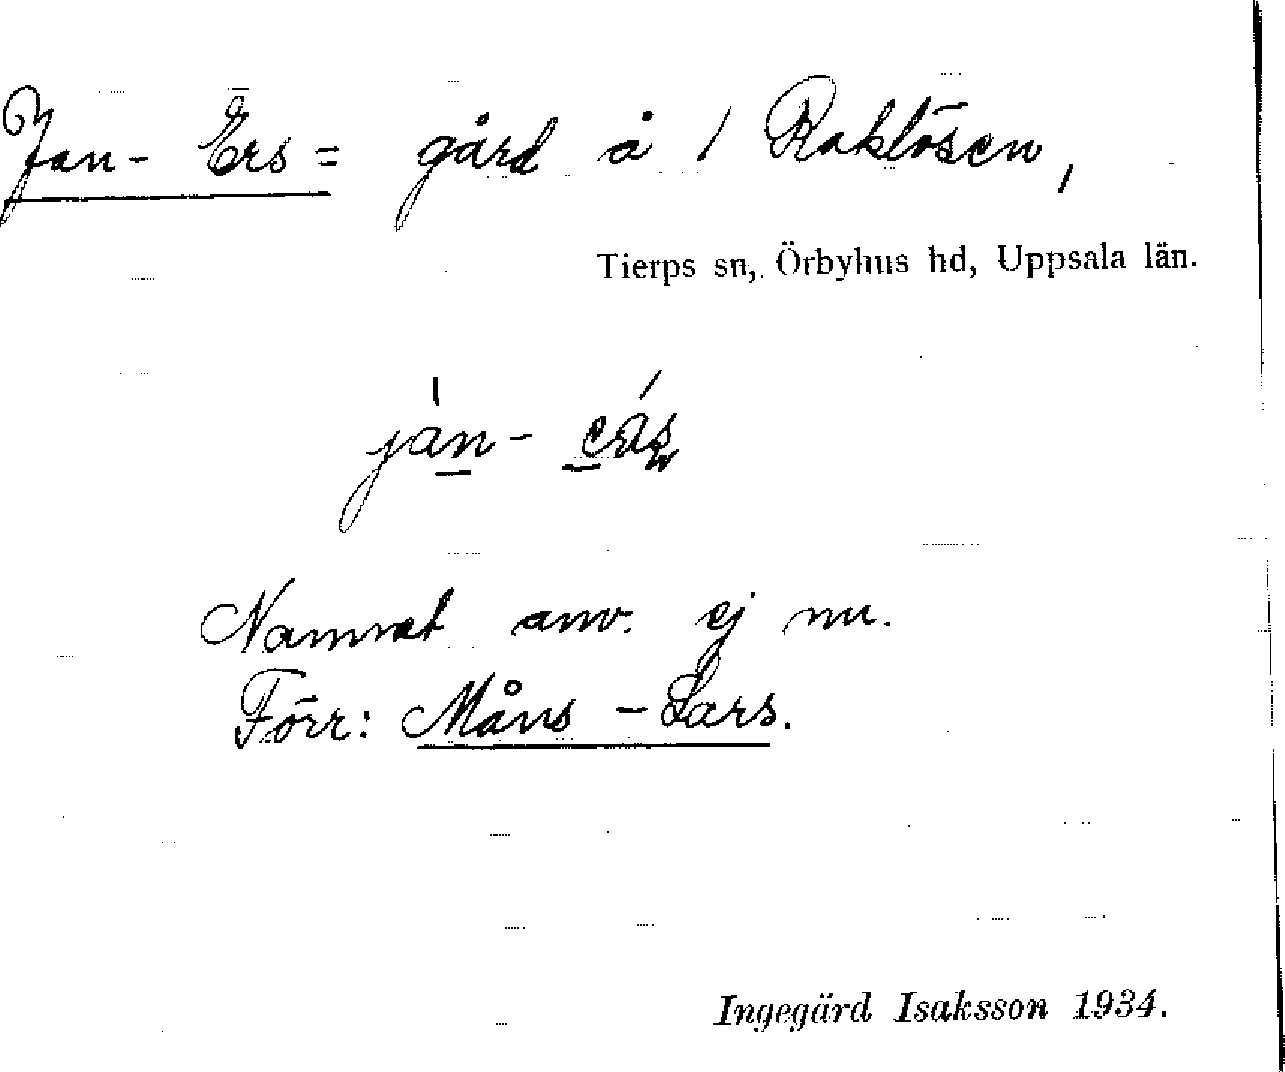 Jan-Ers = gård å 1 Raklösen,
Tierps sn, Örbyhus hd, Uppsala län.
jan-
Namnet anv. ej nu.
Förr: Måns-Lars.
Ingegärd Isaksson 1934.